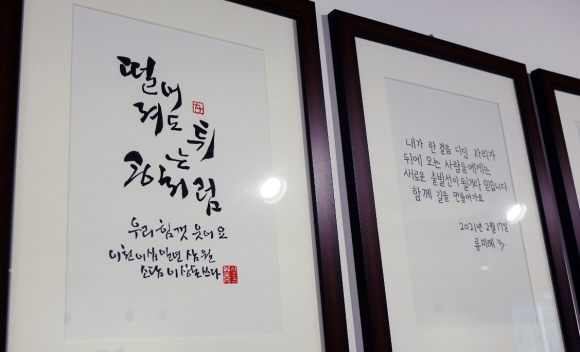 떨어
져도 튀
는
공처럼
우리 힘껏 웃어요
이천이십일년 삼월
소담 쓰다
내가 한 걸음 디딘 자리가
뒤에 오는 사람들에게는
새로운 출발선이 될거라 믿습니다
함께 길을 만들어가요
2021년 2월 17일
류미례